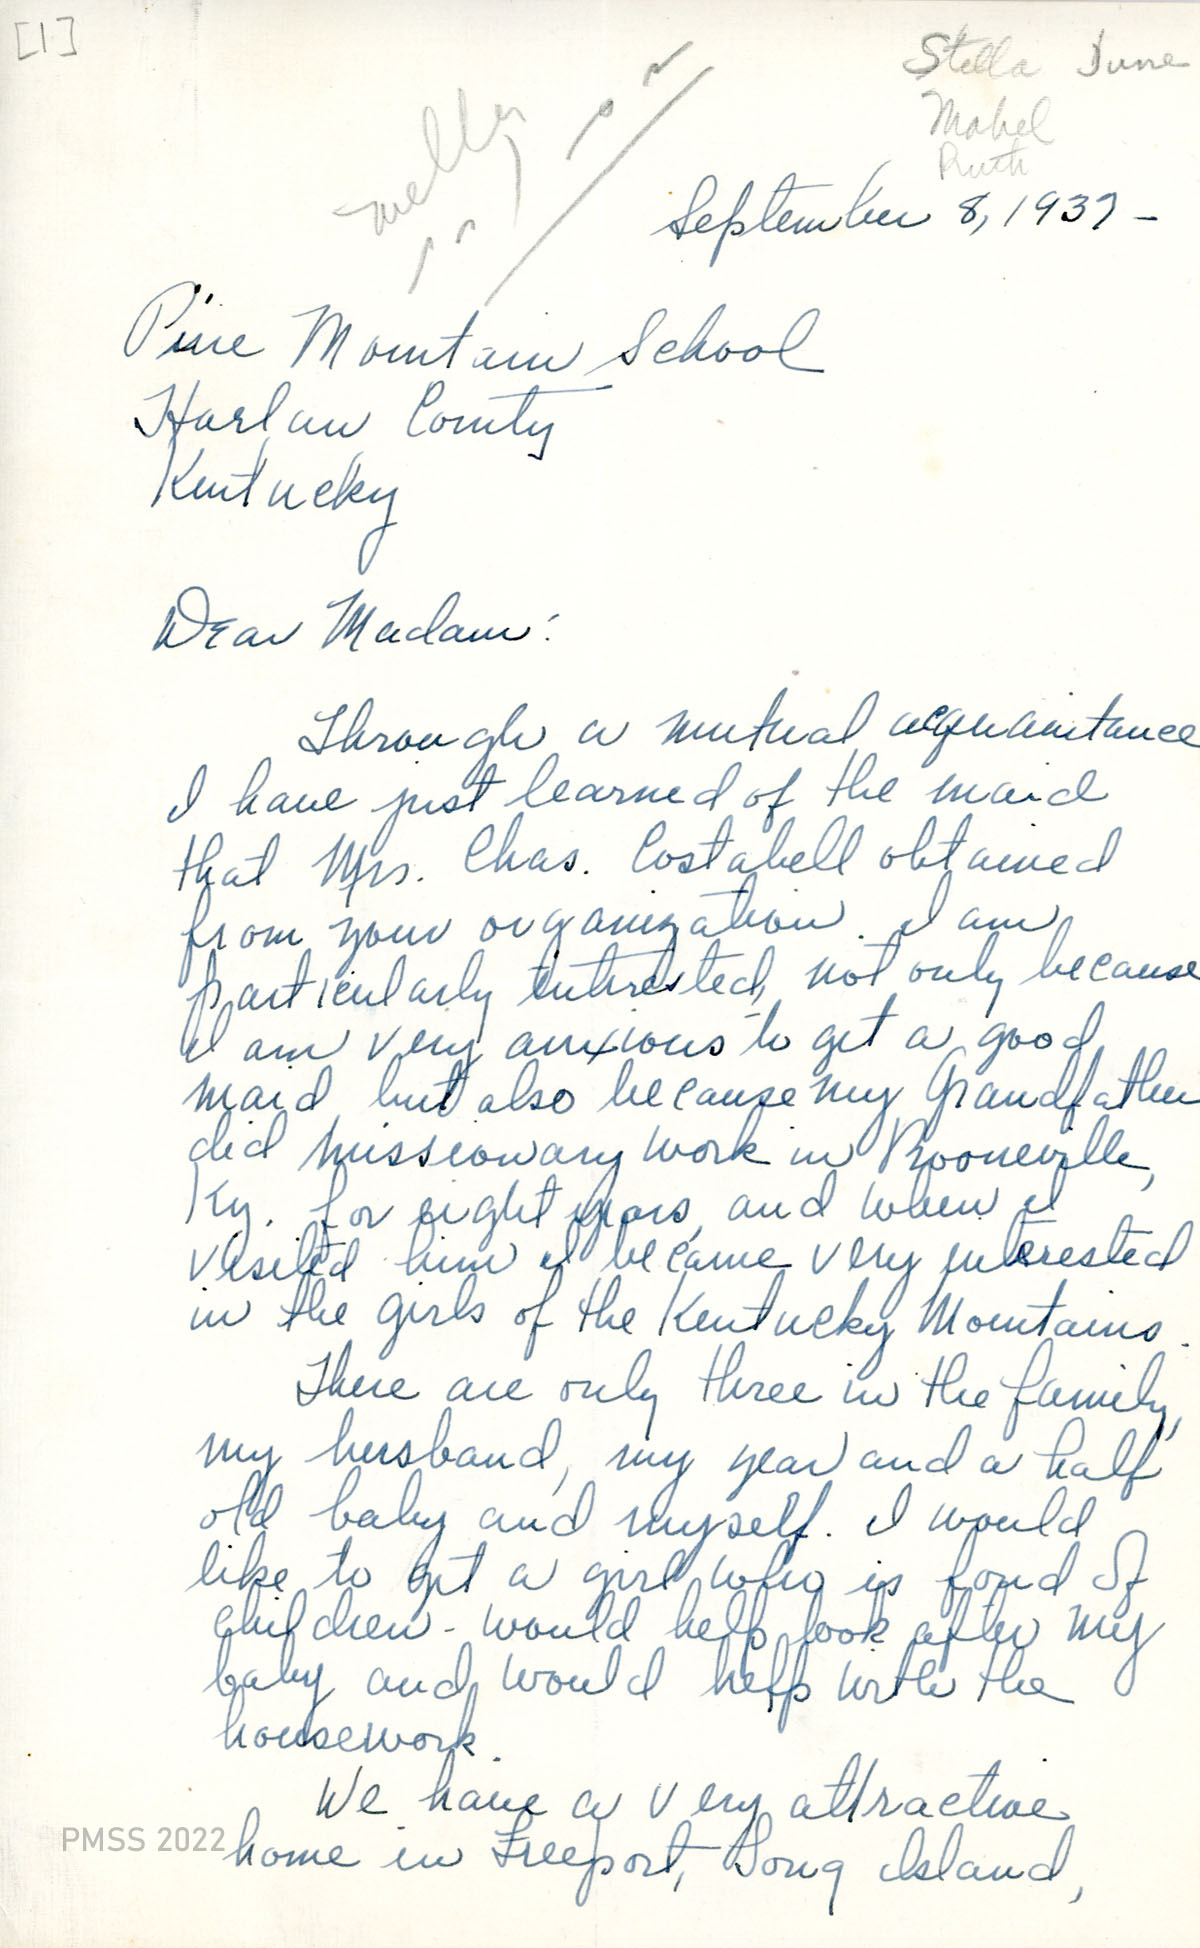 [1]
Stella June
Mabel
Ruth
September 8, 1937 -
Pine Mountain School
Harlan County
Kentucky
Dear Madam:
Through a mutual acquaintance
I have just learned of the maid
that Mrs. Chas. Costabell obtained
from your organization. I am
particularly interested, not only because
I am very anxious to get a good
maid but also because my Grandfather
did missionary work in Booneville,
Ky. for eight years, and when I
visited him I became very interested
in the girls of the Kentucky Mountains.
There are only three in the family,
my husband, my year and a half
old baby and myself. I would
like to get a girl who is fond of
children - would help look after my
baby and would help with the
housework.
We have a very attractive
home in Freeport, Long Island,
PMSS 2022